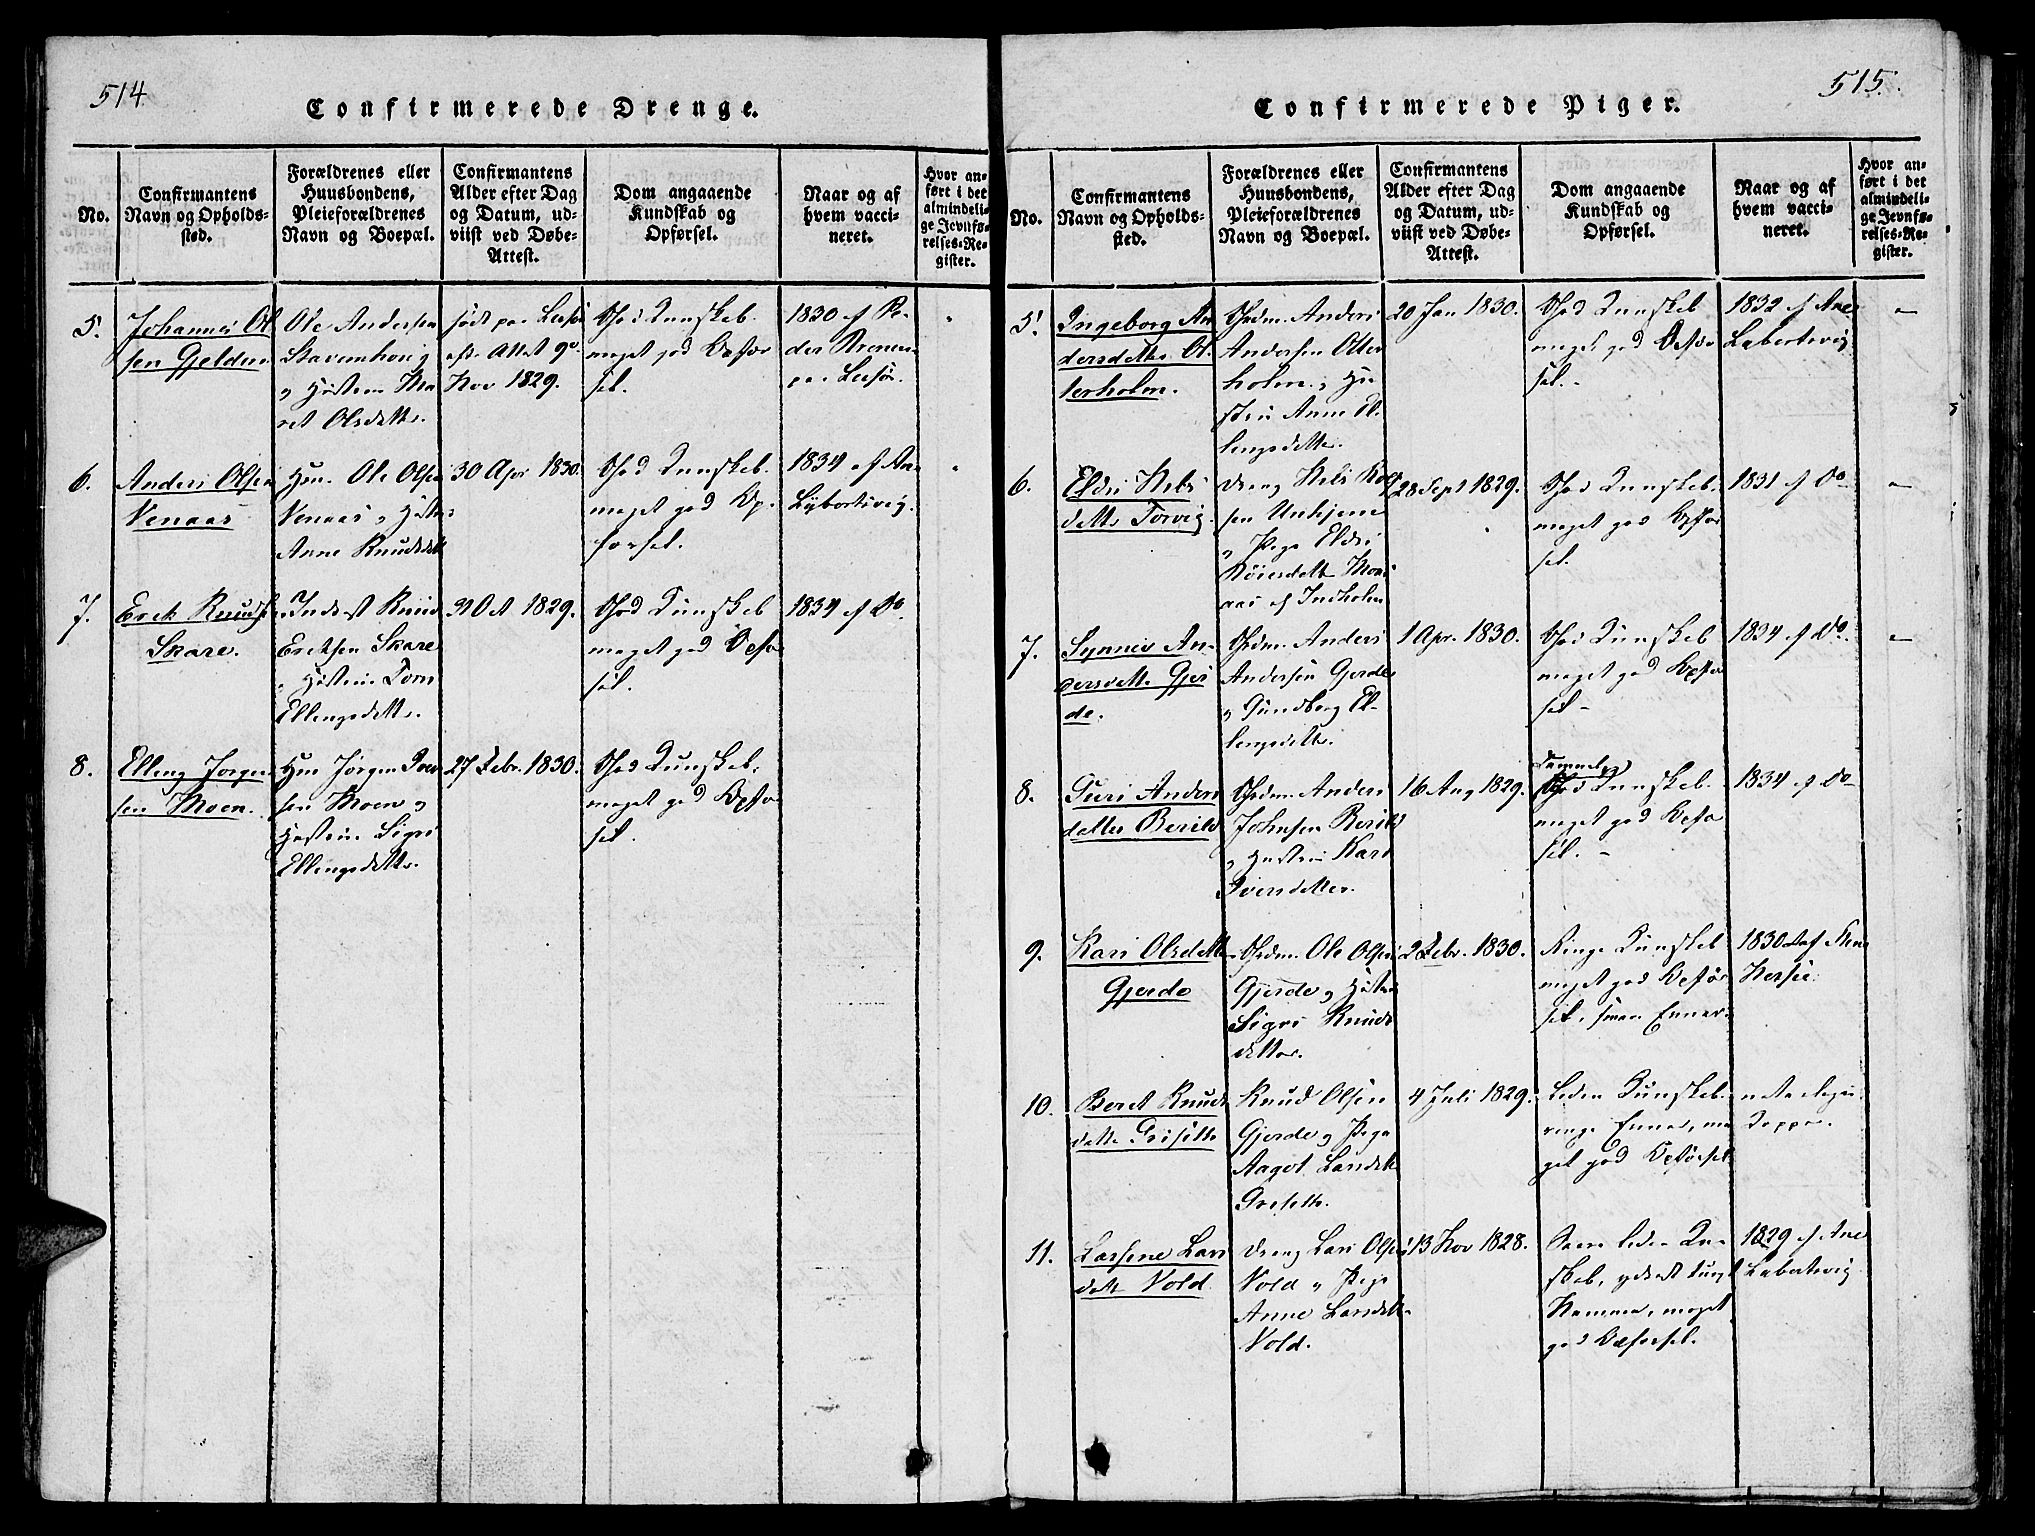 514
Confirmerede Drenge.
No.
Confirmantens
Navn og Opholds-
sted.
Forældrenes eller
Huusbondens,
Pleieforældrenes
Navn og Boepæl.
Confirmantens
Alder efter Dag
og Datum, ud-
viist ved Døbe-
Attest.
Dom angaaende
Kundskab og
Opførsel.
Naar og af
hvem vacci-
neret.
Hvor an-
ført i det
almindeli-
ge Jevnfø-
relses-Re-
gister.
5.
Johannes Ol
sen Gjelden
Ole Andersen
Skarenhoug
og Hustru Ma
ret Olsdatter.
født paa Lesjø
Attest 9de
Nov 1829.
God Kunskab
meget god Opfør
sel.
1830 af Pe-
der
paa Lesjø.
6.
Anders Olsen
Venaas
Ole Olsen
Venaas og Hustru
Anne Knudsdatter
30 Apr 1830.
God Kunskab.
meget god Op-
førsel.
1834 af An
Lybertsvig.
7.
Erik Knuds
Skare.
Inderst Knud
Eriksen Skare
og Hustru
Ellingsdatter.
31 Oct 1829.
God Kunskab
meget god Opfør
sel.
1834 af Do
8.
Elling Jørgen
sen Moen.
Jørgen Iver
sen Moen og
Hustru Sigri
Ellingsdatter.
27 Febr. 1830.
God Kunskab,
meget god Opfør
sel.
515.
Confirmerede Piger.
No.
Confirmantens
Navn og Opholds-
sted.
Forældrenes eller
Huusbondens,
Pleieforældrenes
Navn og Boepæl.
Confirmantens
Alder efter Dag
og Datum, ud-
viist ved Døbe-
Attest.
Dom angaaende
Kundskab og
Opførsel.
Naar og af
hvem vacci-
neret.
Hvor an-
ført i det
almindeli-
ge Jevnfø-
relses-Re-
gister.
5.
Ingeborg An
dersdatter Ot
terholm.
Grdm. Anders
Andersen Otter
holm og Hu
stru Anne El
lingsdatter.
20 Jan 1830.
God Kunskab
meget god Opfør
sel.-
1832 af Ane
Labertsvig
6.
Eldri Nels
datter Torvig.
Dreng Nels
sen Unhjem
og Pige Eldri
af Indholm
28 Sept 1829.
God Kunskab.
meget god Opfør
sel.
1831 af Do
7.
Synnev An-
dersdatter Gjer
de.
Grdm. Anders
Andersen Gjerde
og Gundborg El-
lingsdatter.
1 Apr. 1830.
God Kunskab
meget god Opfør
sel-
1834 af Do.
8.
Guri Anders
datter Berild
Grdm. Anders
Johnsen Berild
og Hustru Kari
Iversdatter.
16 Aug 1829.
Temmelig
God Kunskab.
meget god Opfør
sel.-
1834 af Do
9.
Kari Olsdatter
Gjerde
Grdm. Ole Olsen
Gjerde og Hustru
Sigri Knuds
datter.
2 Febr. 1830.
Ringe Kunskab
meget god Opfør
sel, smaa Evner.
1830 af
10.
Beret Knuds
datter Grisette
Knud Olsen
Gjerde og Pige
Aagot Larsdatter
Grisette.
4 Juli 1829.
Liden Kunskab.
ringe Evner, me
get god Opførsel
naturlige
Kopper.
11.
Larsine Lars
datter Vold.
Dreng Lars Olsen
Vold og Pige
Anne Larsdatter
Vold.
13 Nov 1828.
Saare liden Kun
skab, yderst tungt
Nemme, meget
god Opførsel.
1829 af Ane
Labertsvig